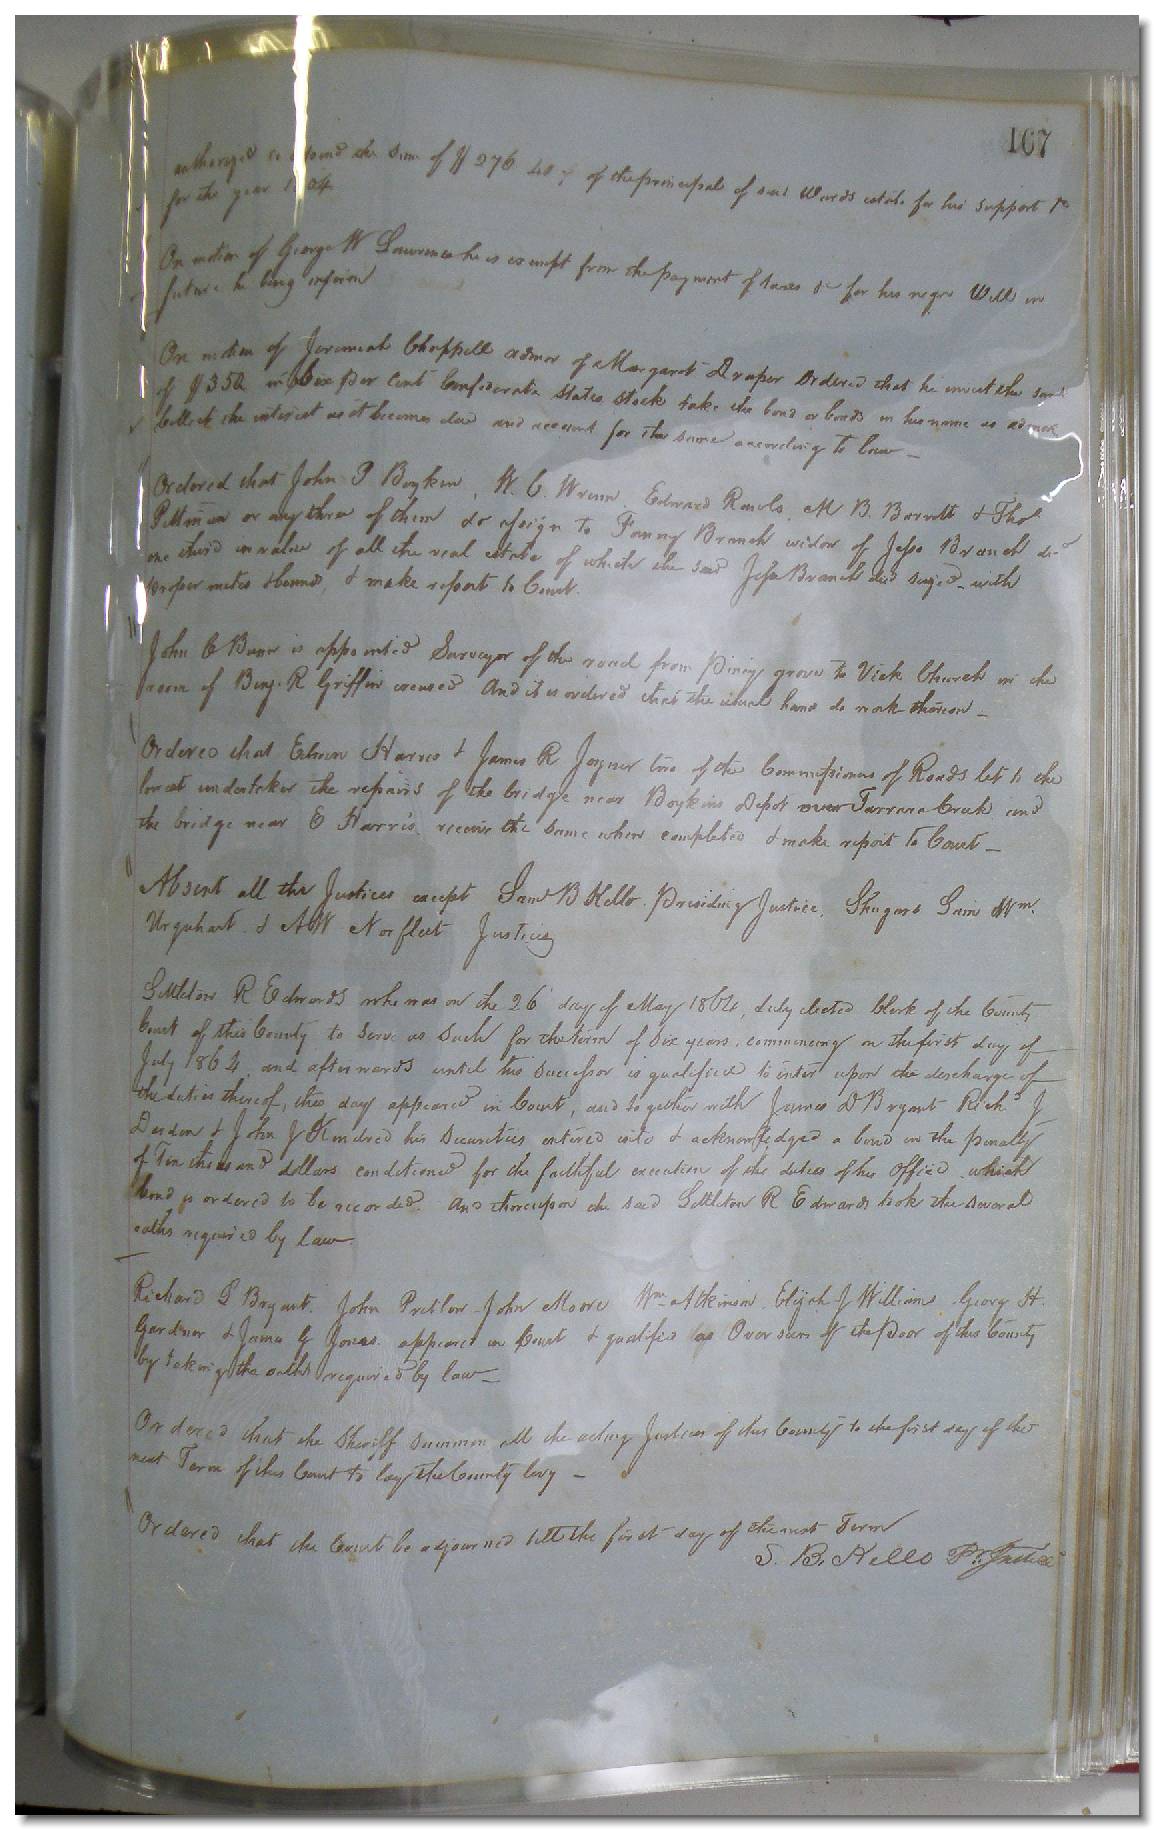 167
authorized to expend the sum of $276 40 of the principal of said Wards estate for his support &c
for the year 1864
On motion of George W Lawrence he is exempt from the payment of taxes &c for his negro Will in
future he being infirm
On motion of Jeremiah Chappell admor of Margaret Draper Ordered that he invest the sum
of $350 in Six Per Cent Confederate States Stock take the bond or bonds in his name as admor
Collect the interest as it becomes due and account for the same according to law_
Ordered that John P Boykin, W. C. Wrenn, Edward Rawls, M B. Barrett & Tho.s
Pittman or any three of them do assign to Fanny Branch widow of Jesse Branch decd
one third in value of all the real estate of which the said Jesse Branch died seized_with
proper metes & bounds, & make report to Court.
John C Bunn is appointed Surveyor of the road from Piney grove to Vick Church in the
room of Benj. R Griffin excused And it is ordered that the usual hands do work thereon_
Ordered that Edwin Harris & James R Joyner two of the Commissioners of Roads let to the
lowest undertaker the repairs of the bridge near Boykins Depot over Tarrara Creek and
the bridge near E Harris, receive the same when completed & make report to Court_
Absent all the Justices except Saml B Kello. Presiding Justice, Shugars Grain Wm.
Urquhart & A W Norfleet Justices
Littleton R Edwards who was on the 26 day of May 1864, duly elected Clerk of the County
Court of this County to serve as such for the term of six years, commencing on the first day of
July 1864, and afterwards until his successor is qualified to enter upon the discharge of
the duties thereof, this day appeared in Court, and together with James D Bryant Richd J
Darden & John J Kindred his Securities entered into & acknowledged a bond in the penalty
of Ten thousand dollars conditioned for the faithful execution of the duties of his Office which
bond is ordered to be recorded. And thereupon the said Littleton R Edwards took the several
oaths required by law
Richard L Bryant. John Pretlow John Moore Wm Atkinson. Elijah J Williams George H.
Gardner & James G Jones. appeared in Court & qualified as Overseers of the Poor of this County
by taking the oaths required by law_
Ordered that the Sheriff summon all the acting Justices of this County to the first day of the
next Term of this Court to lay the County levy _
Ordered that the Court be adjourned till the first day of the next Term
S. B. Kello Pr. Justice